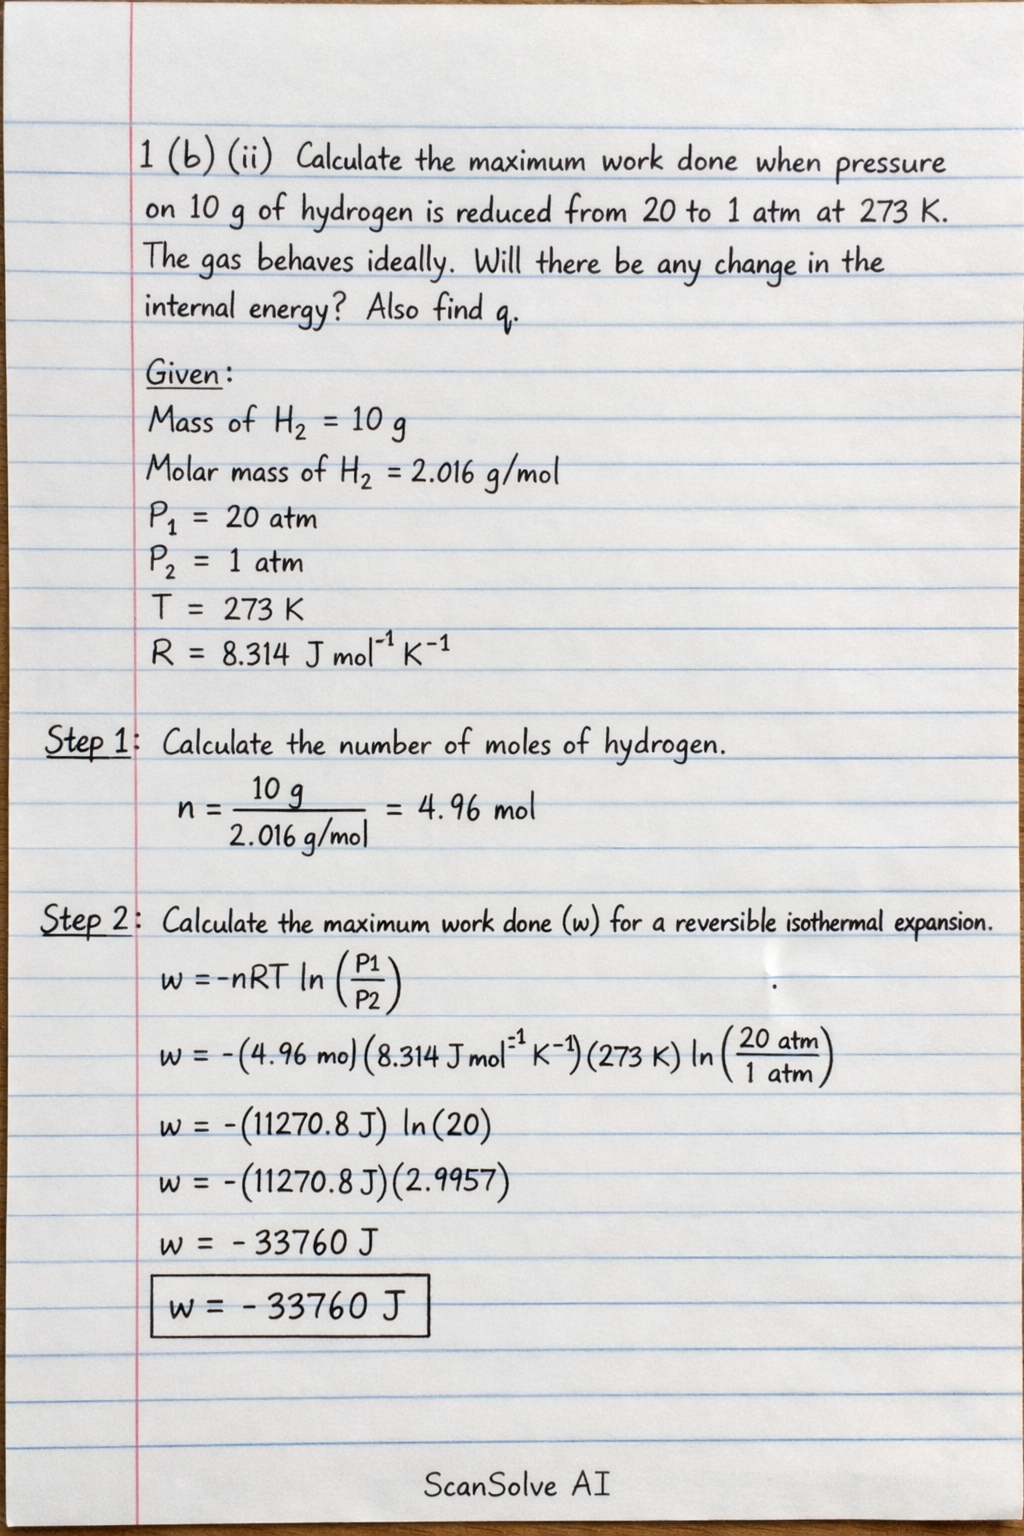 1 (b) (ii) Calculate the maximum work done when pressure
on 10 g of hydrogen is reduced from 20 to 1 atm at 273 K.
The gas behaves ideally. Will there be any change in the
internal energy? Also find q.
Given:
Mass of H₂ = 10 g
Molar mass of H₂ = 2.016 g/mol
P₁ = 20 atm
P₂ = 1 atm
T = 273 K
R = 8.314 J mol⁻¹ K⁻¹
Step 1: Calculate the number of moles of hydrogen.
n = 10 g / 2.016 g/mol = 4.96 mol
Step 2: Calculate the maximum work done (w) for a reversible isothermal expansion.
w = -nRT ln (P1/P2)
w = -(4.96 mol)(8.314 J mol⁻¹ K⁻¹)(273 K) ln (20 atm / 1 atm)
w = -(11270.8 J) ln(20)
w = -(11270.8 J)(2.9957)
w = - 33760 J
w = - 33760 J
ScanSolve AI